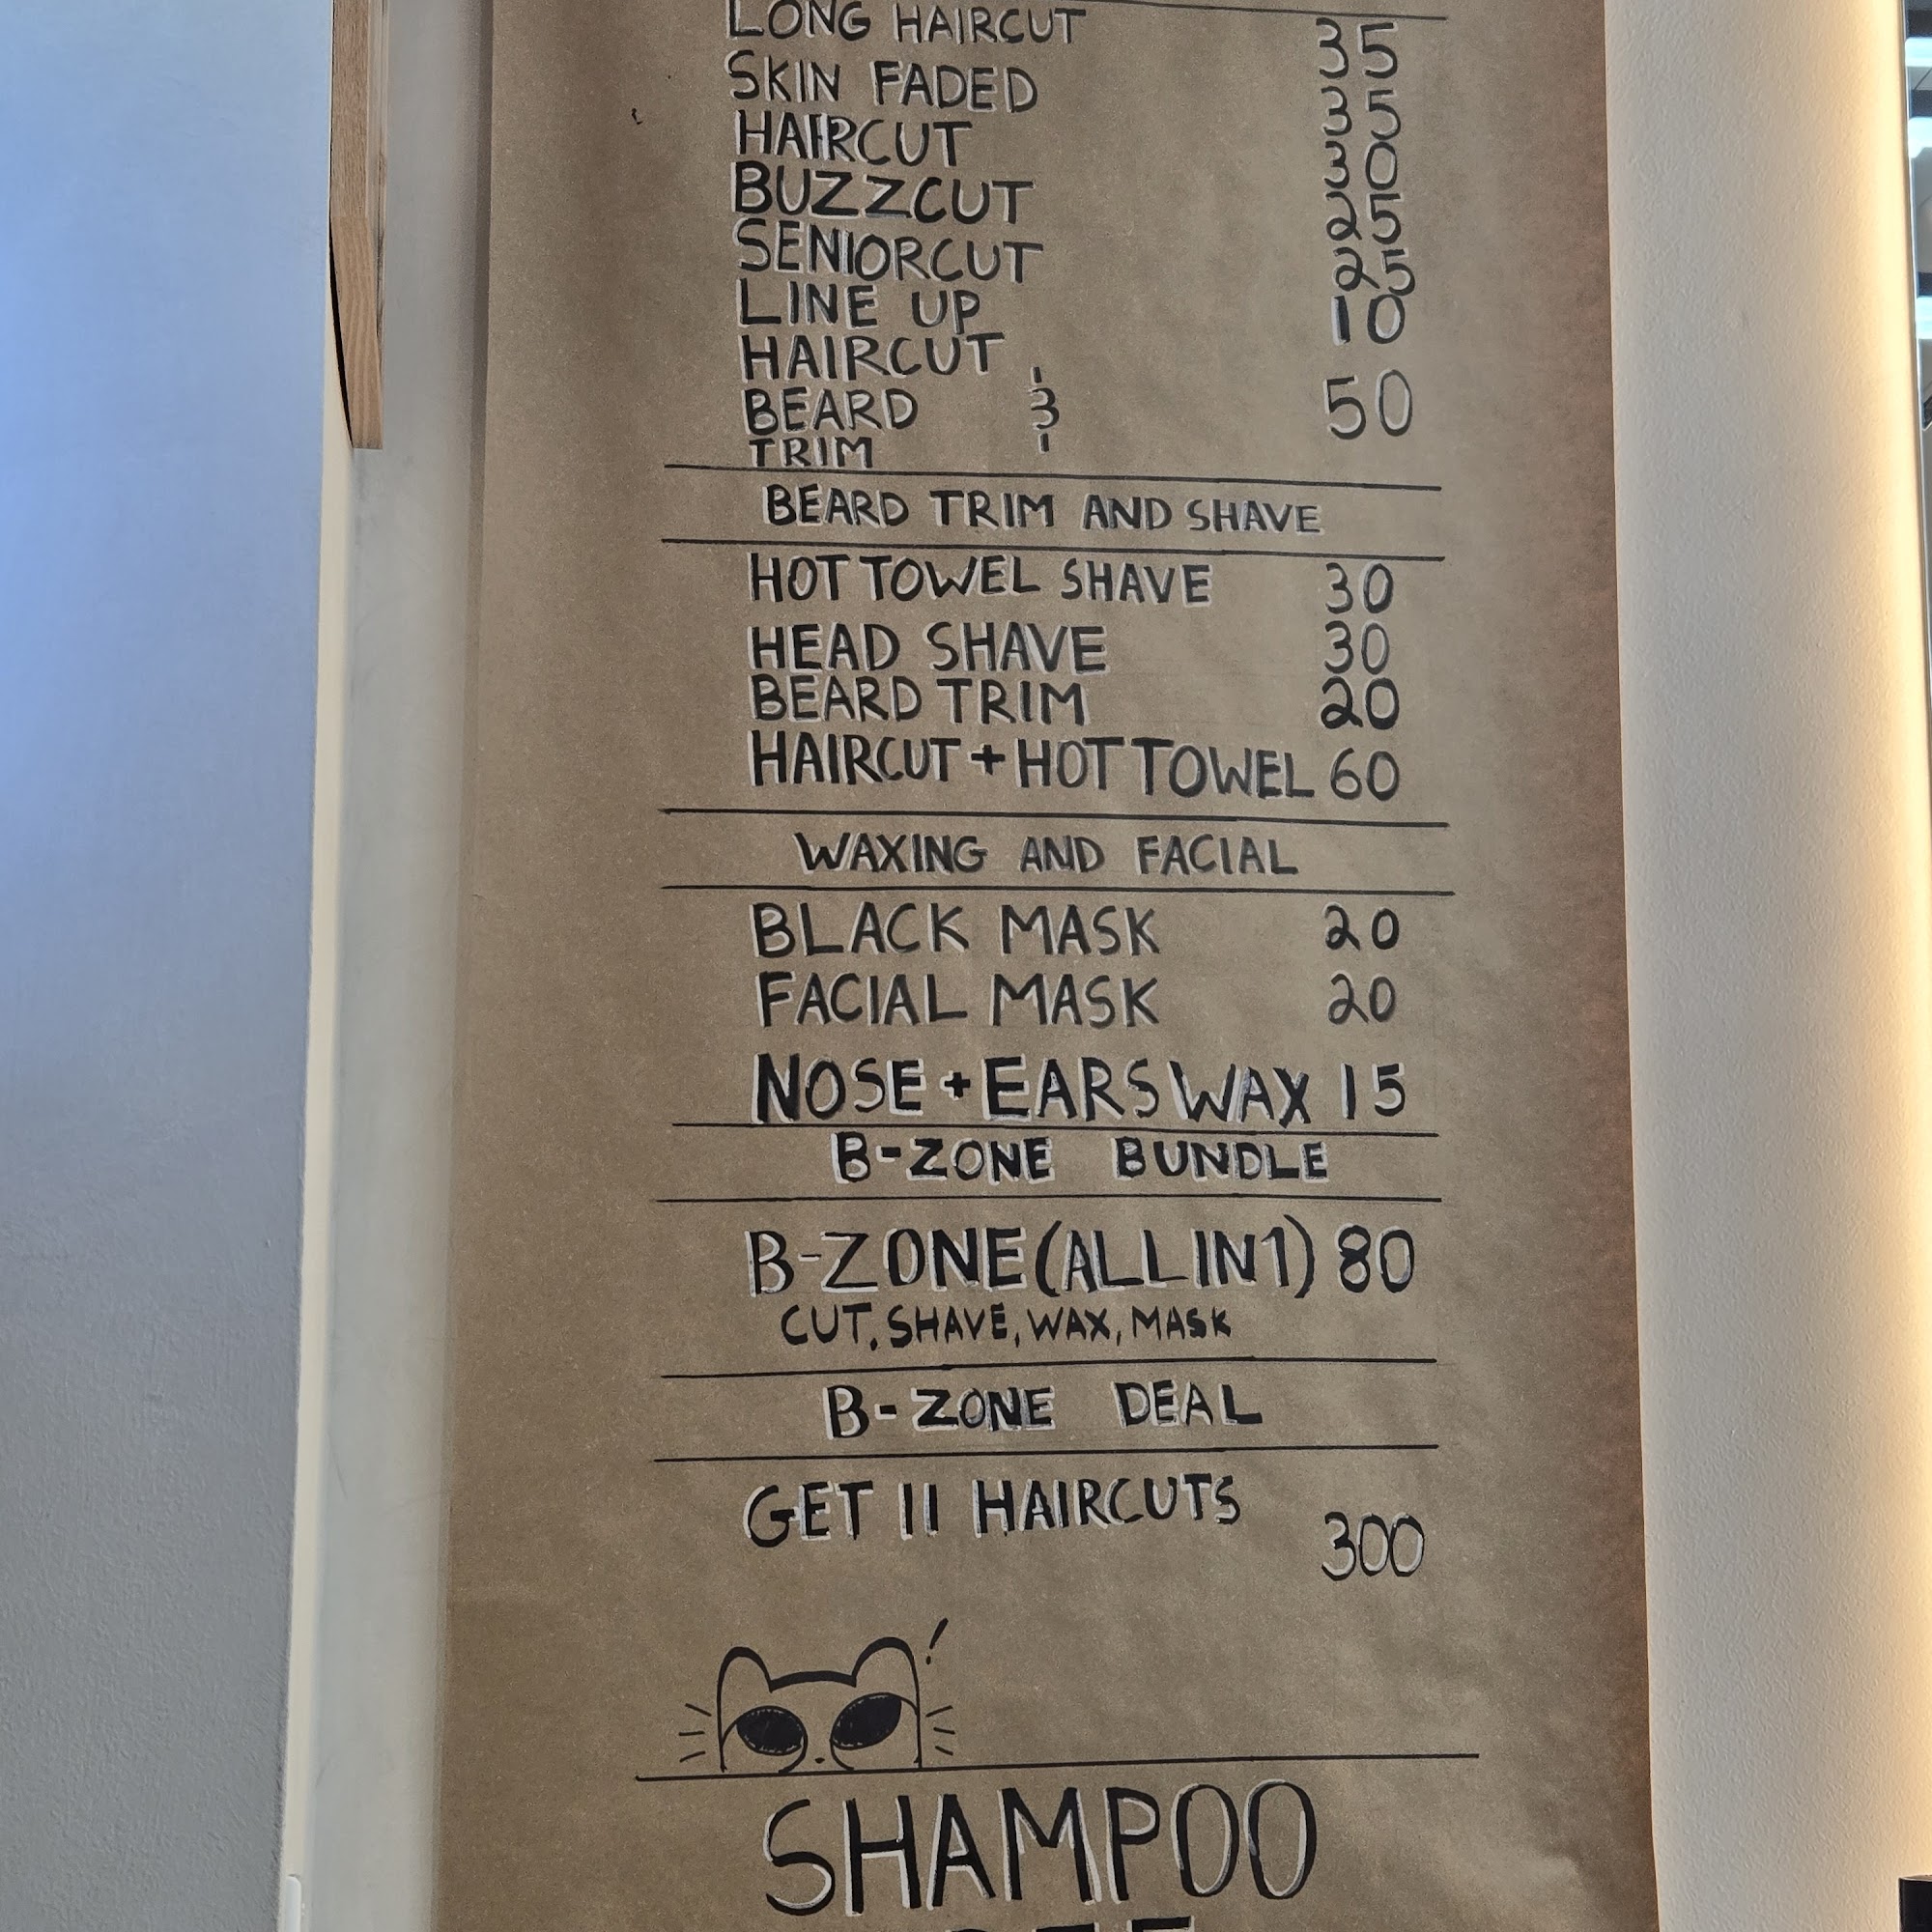 LONG HAIRCUT 35
SKIN FADED 35
HAIRCUT 30
BUZZCUT 25
SENIORCUT 25
LINE UP 10
HAIRCUT
BEARD & 50
TRIM
BEARD TRIM AND SHAVE
HOT TOWEL SHAVE 30
HEAD SHAVE 30
BEARD TRIM 20
HAIRCUT + HOT TOWEL 60
WAXING AND FACIAL
BLACK MASK 20
FACIAL MASK 20
NOSE + EARS WAX 15
B-ZONE BUNDLE
B-ZONE (ALL IN 1) 80
CUT, SHAVE, WAX, MASK
B-ZONE DEAL
GET 11 HAIRCUTS 300
!
SHAMPOO